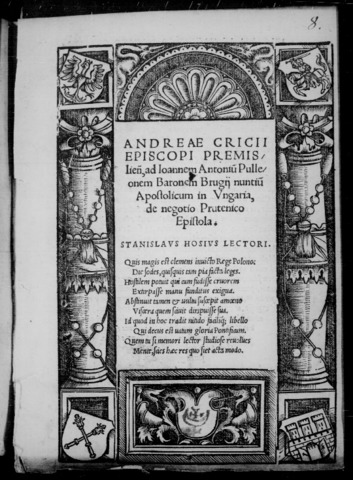 8.
ANDREAE CRICII
EPISCOPI PREMIS-
lień. ad Ioannem Antoniū Pulle-
onem Baronem Brugij nuntiū
Apostolicum in Vngaria,
de negotio Prutenico
Epistola.
STANISLAVS HOSIVS LECTORI.
Quis magis est clemens inuicto Rege Polono;
Dic sodes, quisquis tam pia facta leges.
Hostem potuit qui cum fudisse cruorem
Extirpasse manu funditus exigua.
Abstinuit tamen &
Vistula quem
Id quod in hoc tradit nitido libello
Qui decus est uatum gloria Pontificum.
Quem tu si memori lector studiose reuolues
Mente, scies haec res quo siet acta modo.